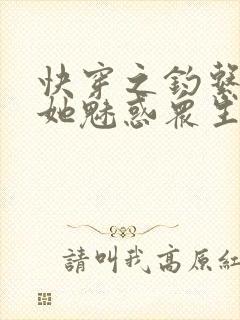 快穿之釣繫
她魅惑眾生
請叫我高原紅